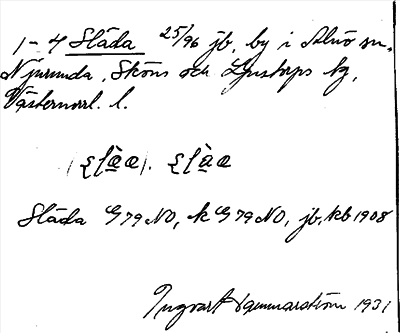 1-4 Släda 25/96 jb, by i Alnö sn.
Njurunda, Sköns och Ljustorps tg,
Västernorrl. l.
Släda G79NO, k G79NO, jb, kb 1908
Ingvart Hammarström 1931